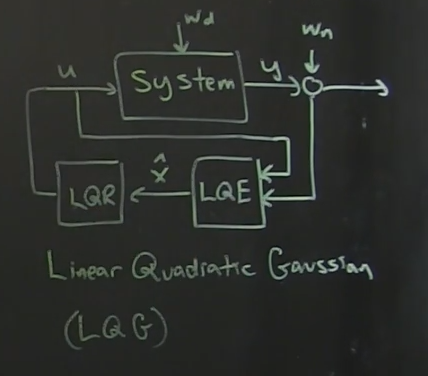 wd
wn
u
System
y
LQR
x̂
LQE
Linear Quadratic Gaussian
(LQG)